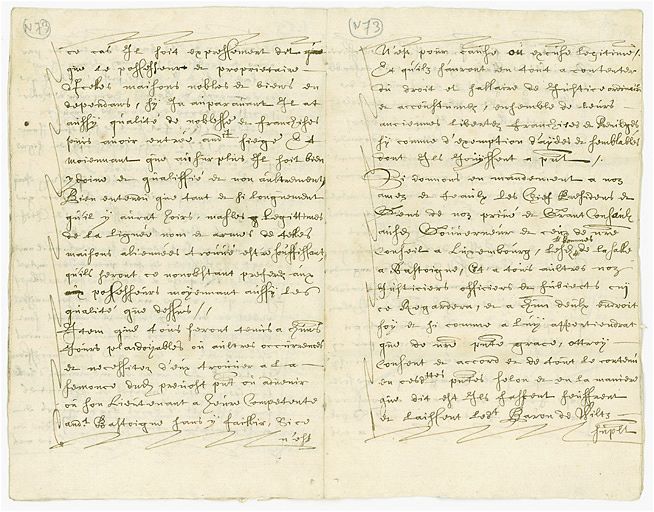 N 73
ce cas Il soit expressement dit que
que le possesseur et proprietaire
d'icelles maisons nobles et biens en
dependans, sy Ja auparavant Il at
aussy qualité de noblesse et franchises
pour avoir entrée audt siege Et
moiennant que au surplus Il soit bien
ydoine et qualiffié et non aultrement
Bien entendu que tant et si longuement
qu'il y aurat hoirs masles legittimes
de la lignee nom et armes de telles
maisons alienées
qu'ils seront ce nonobstant preferez aux
possesseurs moyennant aussy les
qualité que dessus //
Item que tous seront tenus a
Jours plaidoyables ou aultres occurrences
et necessitez d'eux trouver a la
semonce dudt prevost pnt ou advenir
ou son Lieutenant a heure competente
audt Bastoigne sans y faillir, Si ce
n'est
N 73
N'est pour cause ou excuse legitime /.
Et qu'ilz seront en tout a contenter
du droit et sallaire de Justice ordinaire
et accoustumés, ensemble de leurs
anciennes libertez franchises et
sy comme d'exemption d'aydes et semblables
dont Ils Jouissent a pnt /.
Si donnons en mandement a noz
amez et feaulx les Chief Presidens et
Gens de noz privé et Grand Conseaulx
ausdt Gouverneur et ceux de nre
Conseil a Luxembourg, hommes de la sale
a Bastoigne, Et a tous aultres noz
Justiciers officiers et subiects cui
ce Regardera, et a Jceux endroit
soy et si comme a luy appartiendrat
que de nre pnte grace, ottroy
Consent et accord et de tout le contenu
en cesdttes pntes selon et en la maniere
que dit est Ils facent seuffrent
et laissent ledt Baron de Wiltz